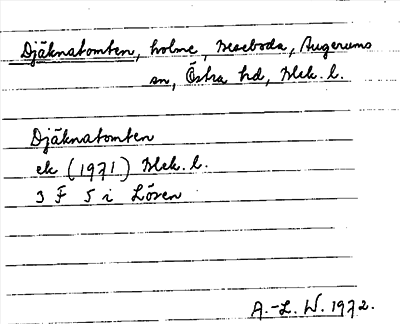 Djäknatomten, holme, Meseboda, Augerums
sn, Östra hd, Blek. l.
Djäknatomten
ek (1971) Blek. l.
3 F 5 i Lösen
A.-L. W. 1972.